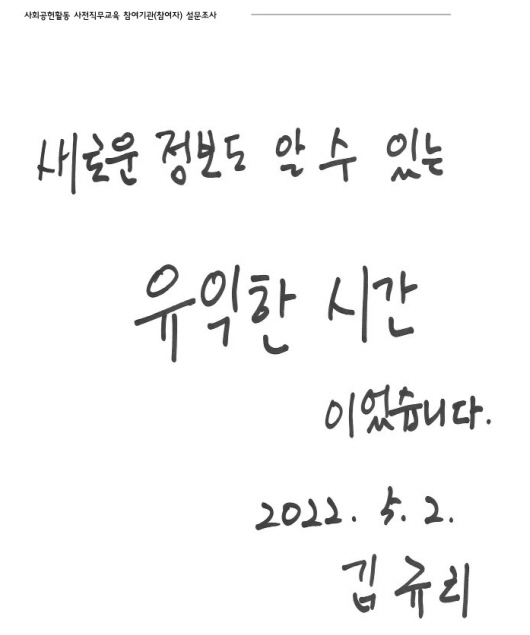 사회공헌활동 사전직무교육 참여기관(참여자) 설문조사
새로운 정보도 알 수 있는
유익한 시간
이었습니다.
2022. 5. 2.
김규리